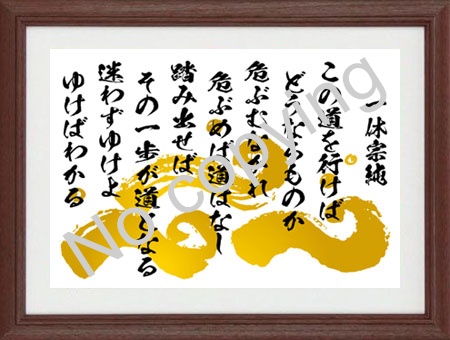 一休宗純
この道を行けば
どうなるものか
危ぶむなかれ
危ぶめば道はなし
踏み出せば
その一歩が道となる
迷わずゆけよ
ゆけばわかる
No copying